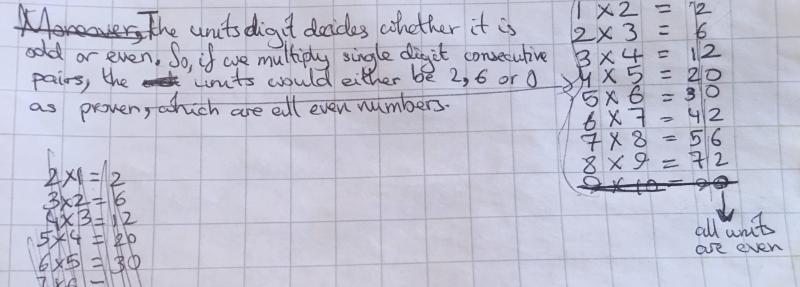 Moreover, The units digit decides whether it is
odd or even. So, if we multiply single digit consecutive
pairs, the units would either be 2, 6 or 0
as proven, which are all even numbers.
1 x 2 = 2
2 x 3 = 6
3 x 4 = 12
4 x 5 = 20
5 x 6 = 30
6 x 7 = 42
7 x 8 = 56
8 x 9 = 72
9 x 10 = 90
all units
are even
2 x 1 = 2
3 x 2 = 6
4 x 3 = 12
5 x 4 = 20
6 x 5 = 30